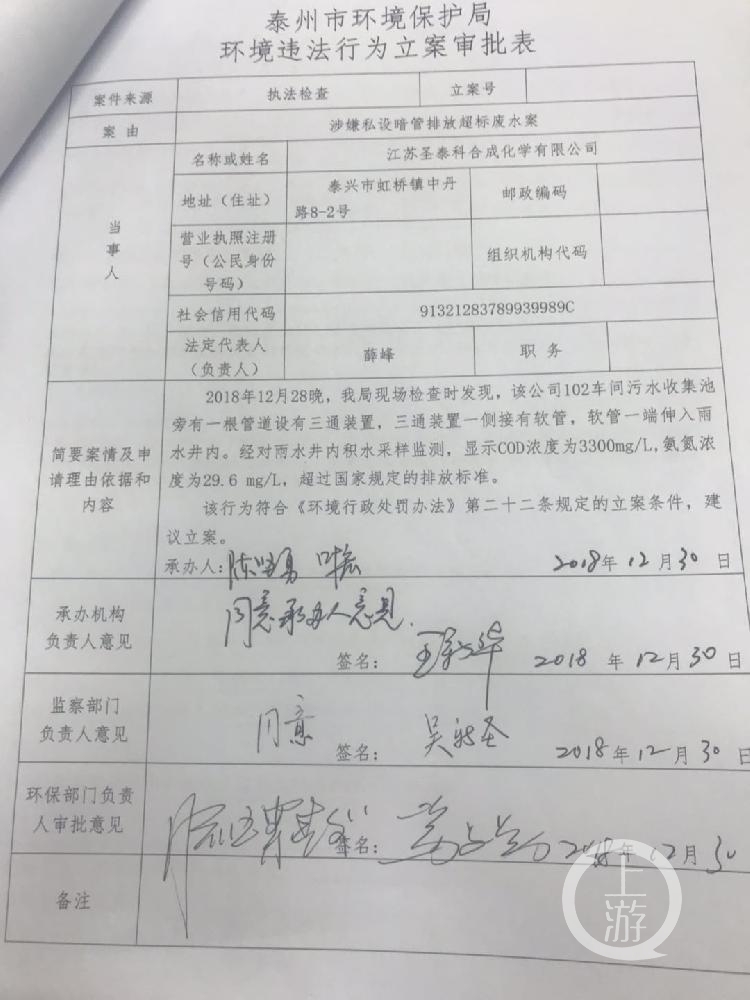 泰州市环境保护局
环境违法行为立案审批表
案件来源 执法检查 立案号
案由 涉嫌私设暗管排放超标废水案
当事人
名称或姓名 江苏圣泰科合成化学有限公司
地址（住址） 泰兴市虹桥镇中丹
路8-2号 邮政编码
营业执照注册
号（公民身份
号码） 组织机构代码
社会信用代码 91321283789939989C
法定代表人
（负责人） 薛峰 职务
简要案情及申
请理由依据和
内容
2018年12月28晚，我局现场检查时发现，该公司102车间污水收集池
旁有一根管道设有三通装置，三通装置一侧接有软管，软管一端伸入雨
水井内。经对雨水井内积水采样监测，显示COD浓度为3300mg/L,氨氮浓
度为29.6 mg/L，超过国家规定的排放标准。
该行为符合《环境行政处罚办法》第二十二条规定的立案条件，建
议立案。
承办人： 2018年12月30日
承办机构
负责人意见
同意承办人意见.
签名： 2018年12月30日
监察部门
负责人意见
同意
签名： 2018年12月30日
环保部门负责
人审批意见
签名： 2018年12月30
备注
上游